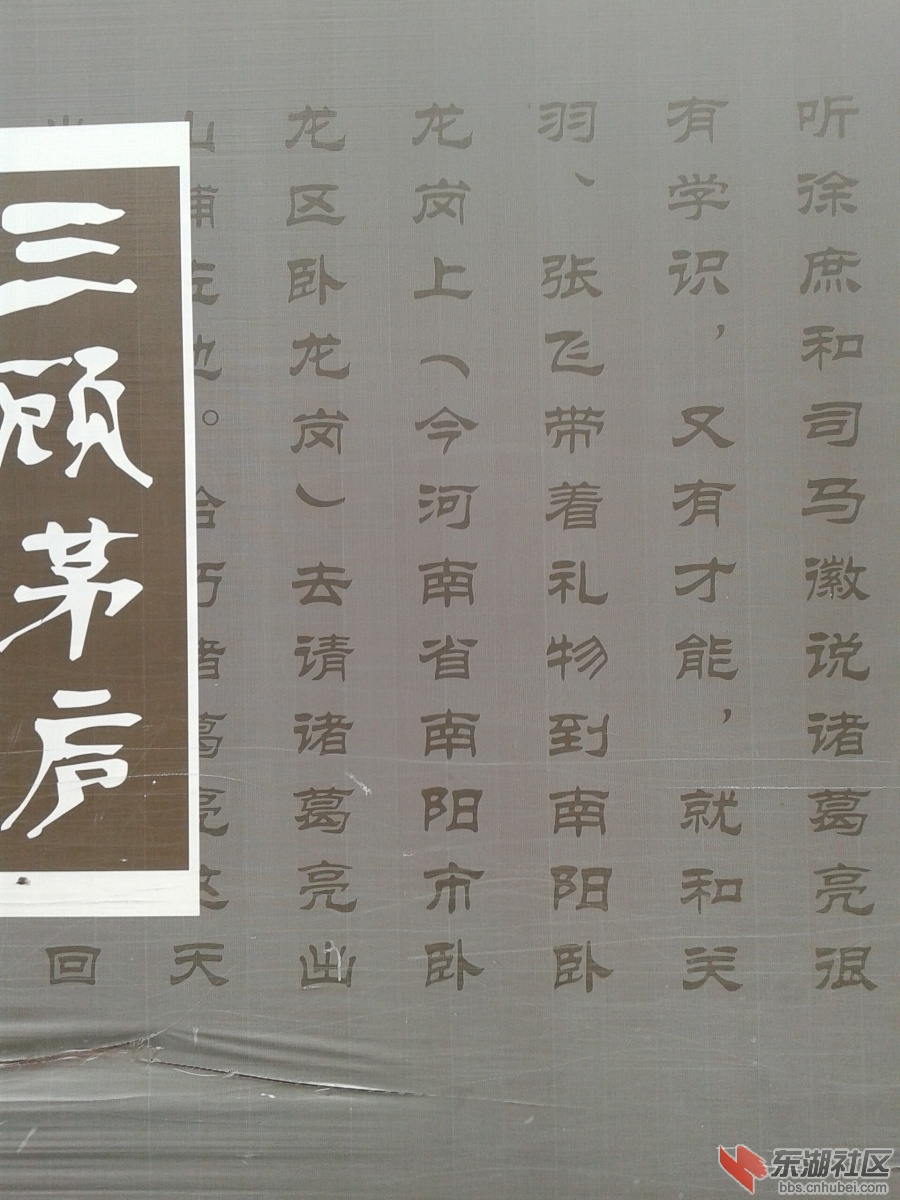 听徐庶和司马徽说诸葛亮很
有学识，又有才能，就和关
羽、张飞带着礼物到南阳卧
龙岗上（今河南省南阳市卧
龙区卧龙岗）去请诸葛亮出
天
回
三顾茅庐
东湖社区
bbs.cnhubei.com